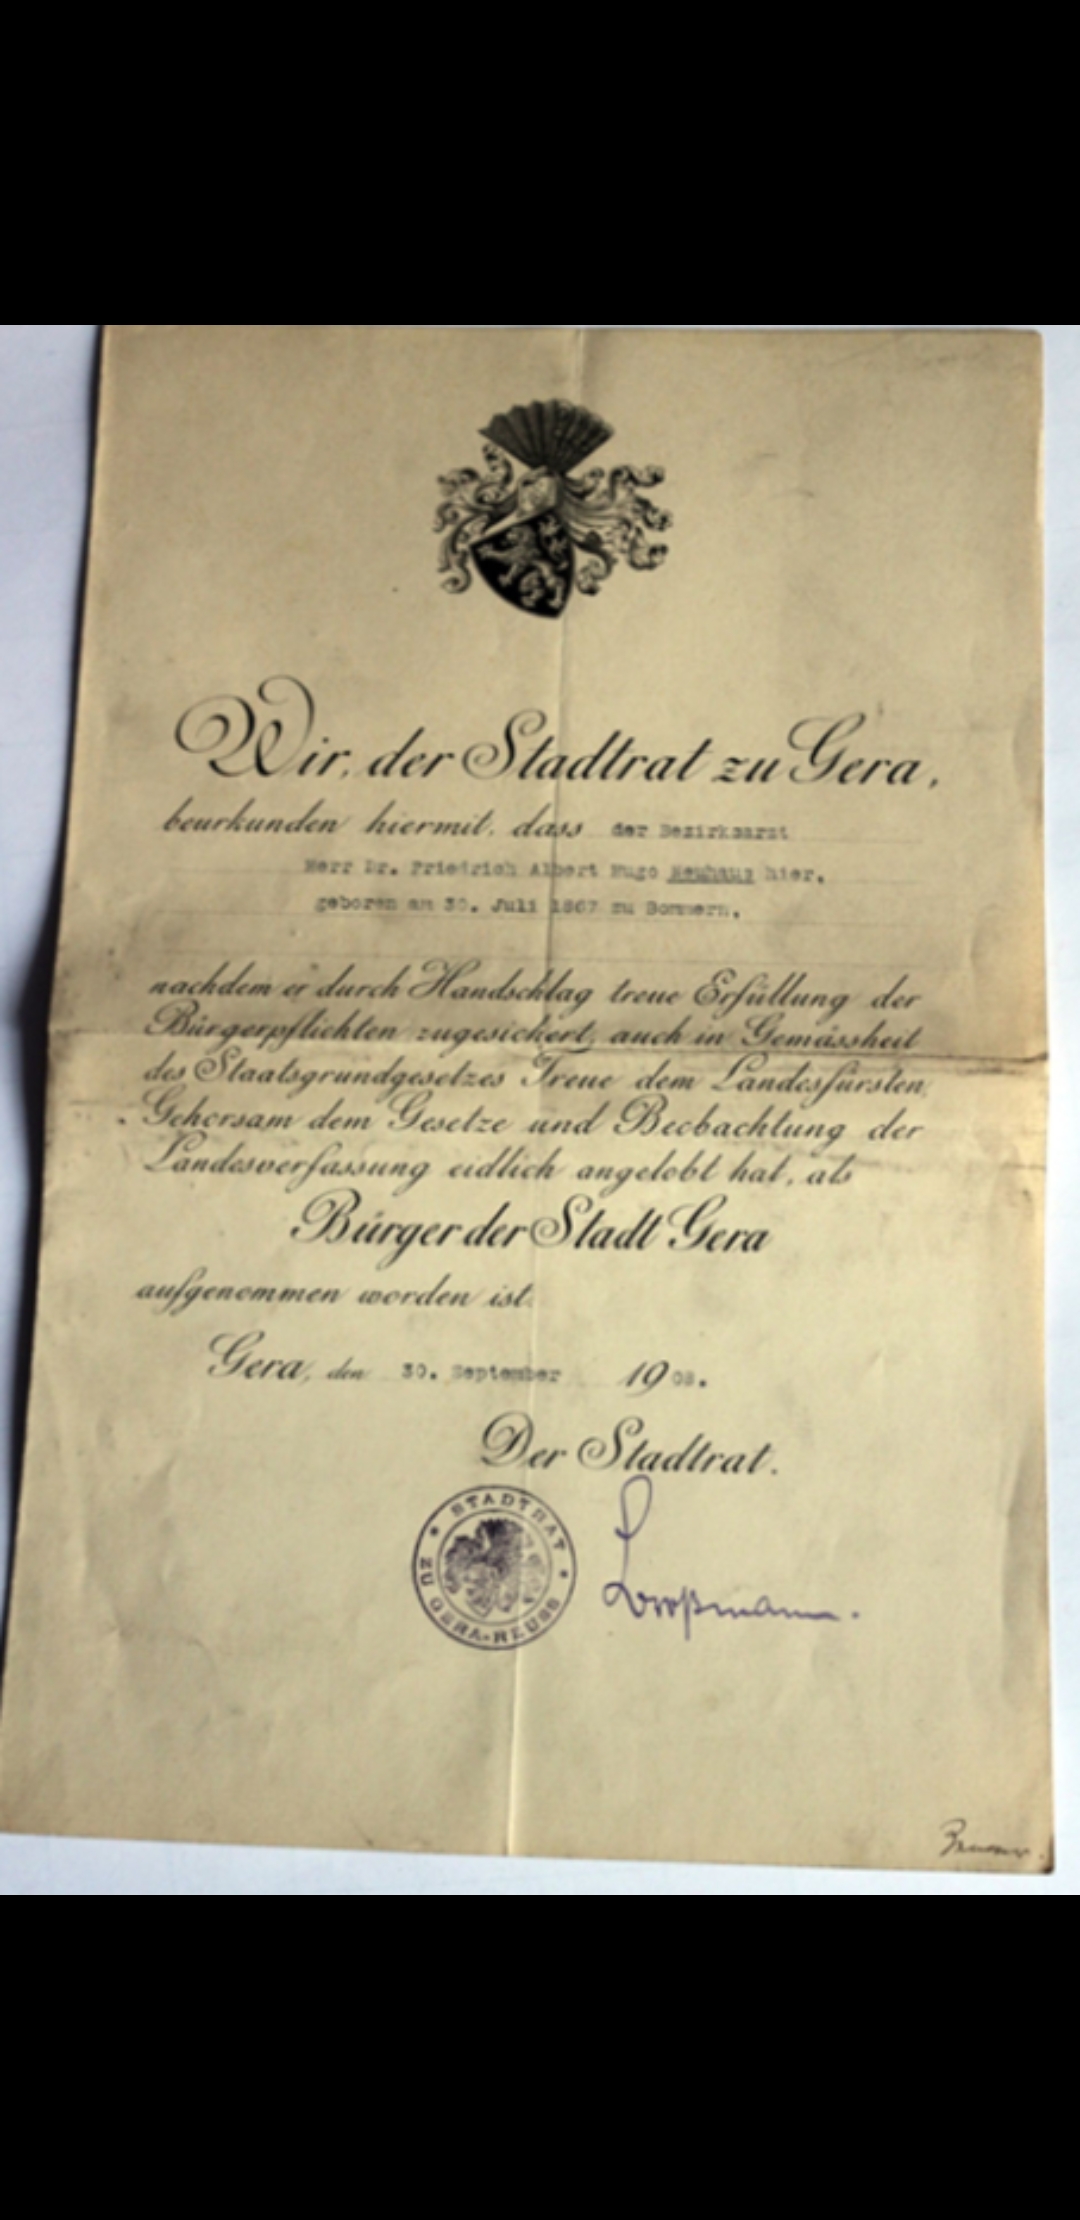 Wir, der Stadtrat zu Gera,
beurkunden hiermit, dass der Bezirksarzt
Herr Dr. Friedrich Albert Hugo Neuhaus hier,
geboren am 30. Juli 1867 zu Bommern,
nachdem er durch Handschlag treue Erfüllung der
Bürgerpflichten zugesichert, auch in Gemässheit
des Staatsgrundgesetzes Treue dem Landesfürsten,
Gehorsam dem Gesetze und Beobachtung der
Landesverfassung eidlich angelobt hat, als
Bürger der Stadt Gera
aufgenommen worden ist.
Gera, den 30. September 1908.
Der Stadtrat.
STADTRAT
ZU GERA-REUSS